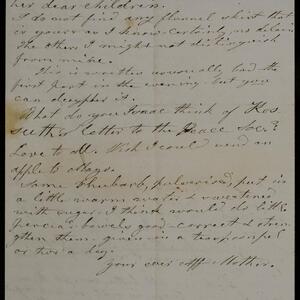 her dear children.
I do not find any flannel skirt that
is yours as I know certainly, no delain
The others I might not distinguish
from mine.
This is written unusually bad the
first part in the evening but you
can decypher it.
What do you Isaac think of Kos
suth's letter to the Peace Soc?
Love to all. Wish I could send an
apple to all
Some rhubarb, pulverised, put in
a little warm water & sweetened
with sugar I think would do little
bowels good - correct & stren
gthen them given in a teaspoonful
or two a day.
Your ever aff. Mother.